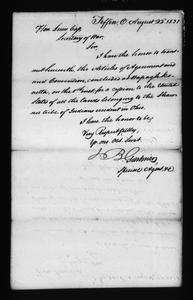 Tiffin, O. August 25 1831
Hon Lewis Cass
Secretary of War,
Sir,
I have the honor to trans-
mit herewith, the Articles of Agreement and
Convention, concluded at Wapaghko-
netta, on the 8th inst for a cession, to the United
States of all the Lands belonging to the Shaw-
nee tribe of Indians resident in Ohio.
I have the honor to be,
Very Respectfully,
Yr. mo. Obt. Servt
J. B. Gardiner